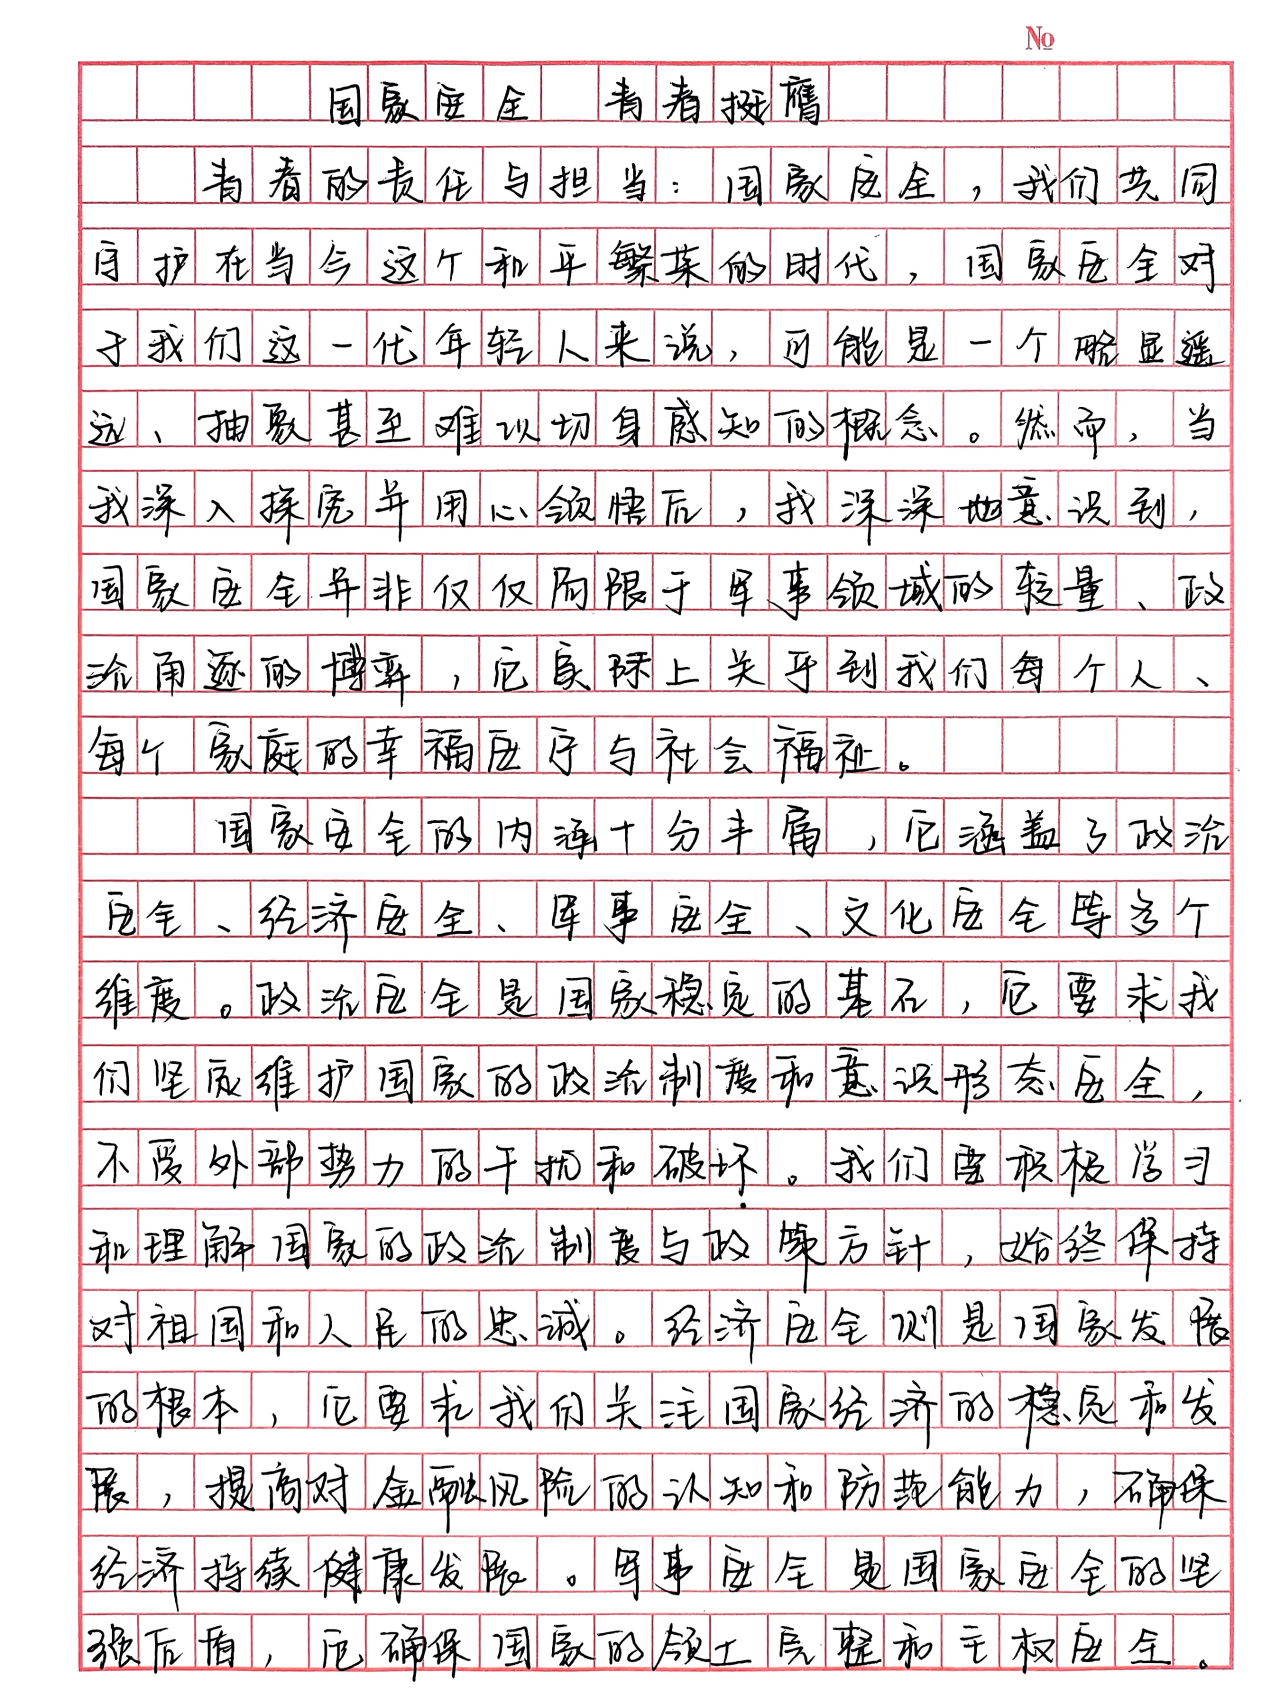 No
国家安全 青春挺膺
青春的责任与担当：国家安全，我们共同
守护在当今这个和平繁荣的时代，国家安全对
于我们这一代年轻人来说，可能是一个略显遥
远、抽象甚至难以切身感知的概念。然而，当
我深入探究并用心领悟后，我深深地意识到，
国家安全并非仅仅局限于军事领域的较量、政
治角逐的博弈，它实际上关乎到我们每个人、
每个家庭的幸福安宁与社会福祉。
国家安全的内涵十分丰富，它涵盖了政治
安全、经济安全、军事安全、文化安全等多个
维度。政治安全是国家稳定的基石，它要求我
们坚定维护国家的政治制度和意识形态安全，
不受外部势力的干扰和破坏。我们要积极学习
和理解国家的政治制度与政策方针，始终保持
对祖国和人民的忠诚。经济安全则是国家发展
的根本，它要求我们关注国家经济的稳定和发
展，提高对金融风险的认知和防范能力，确保
经济持续健康发展。军事安全是国家安全的坚
强后盾，它确保国家的领土完整和主权安全。